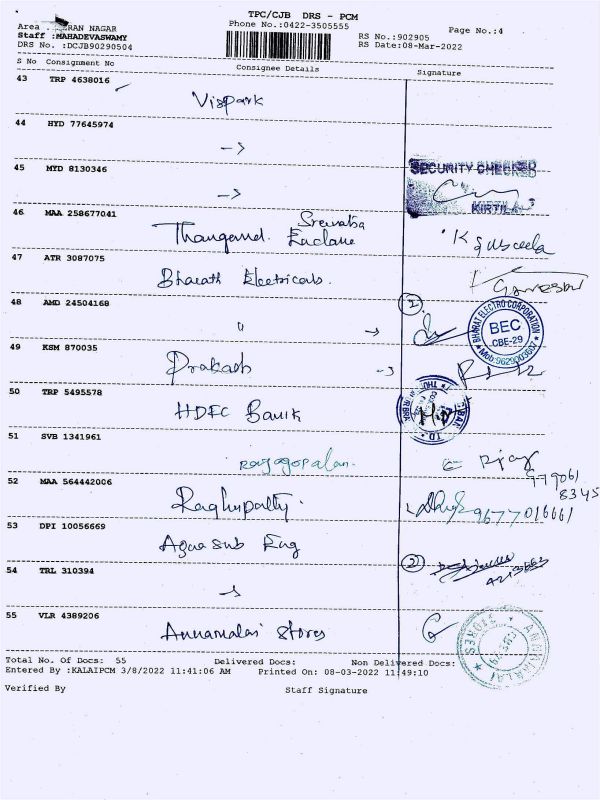 TPC/CJB DRS - PCM
Area : RAN NAGAR Phone No.:0422-3505555 Page No.:4
Staff :MAHADEVASWAMY RS No.:902905
DRS No. :DCJB90290504 RS Date:08-Mar-2022
S No Consignment No Consignee Details Signature
43 TRP 4638016
Vispark
44 HYD 77645974
->
45 MYD 8130346
SECURITY CHECKED
->
KIRTILAL
46 MAA 258677041
Srevatsa
Thangavel Enclave K Susceela
47 ATR 3087075
Bharath Electricals. Ganesan
48 AMD 24504168 2
" -> BHARAT ELECTRO CORPORATION
BEC
CBE-29
Mob:9629003667
49 KSM 870035
Prakash ->
50 TRP 5495578
HDFC Bank
51 SVB 1341961
Rajagopalan.
52 MAA 564442006 979061
8345
Raghupathy. 9677016661
53 DPI 10056669
Sub Eng
54 TRL 310394 2
->
55 VLR 4389206
Annamalai Stores G
ANNAMALAI STORES
Total No. Of Docs: 55 Delivered Docs: Non Delivered Docs:
Entered By :KALAIPCM 3/8/2022 11:41:06 AM Printed On: 08-03-2022 11:49:10
Verified By Staff Signature